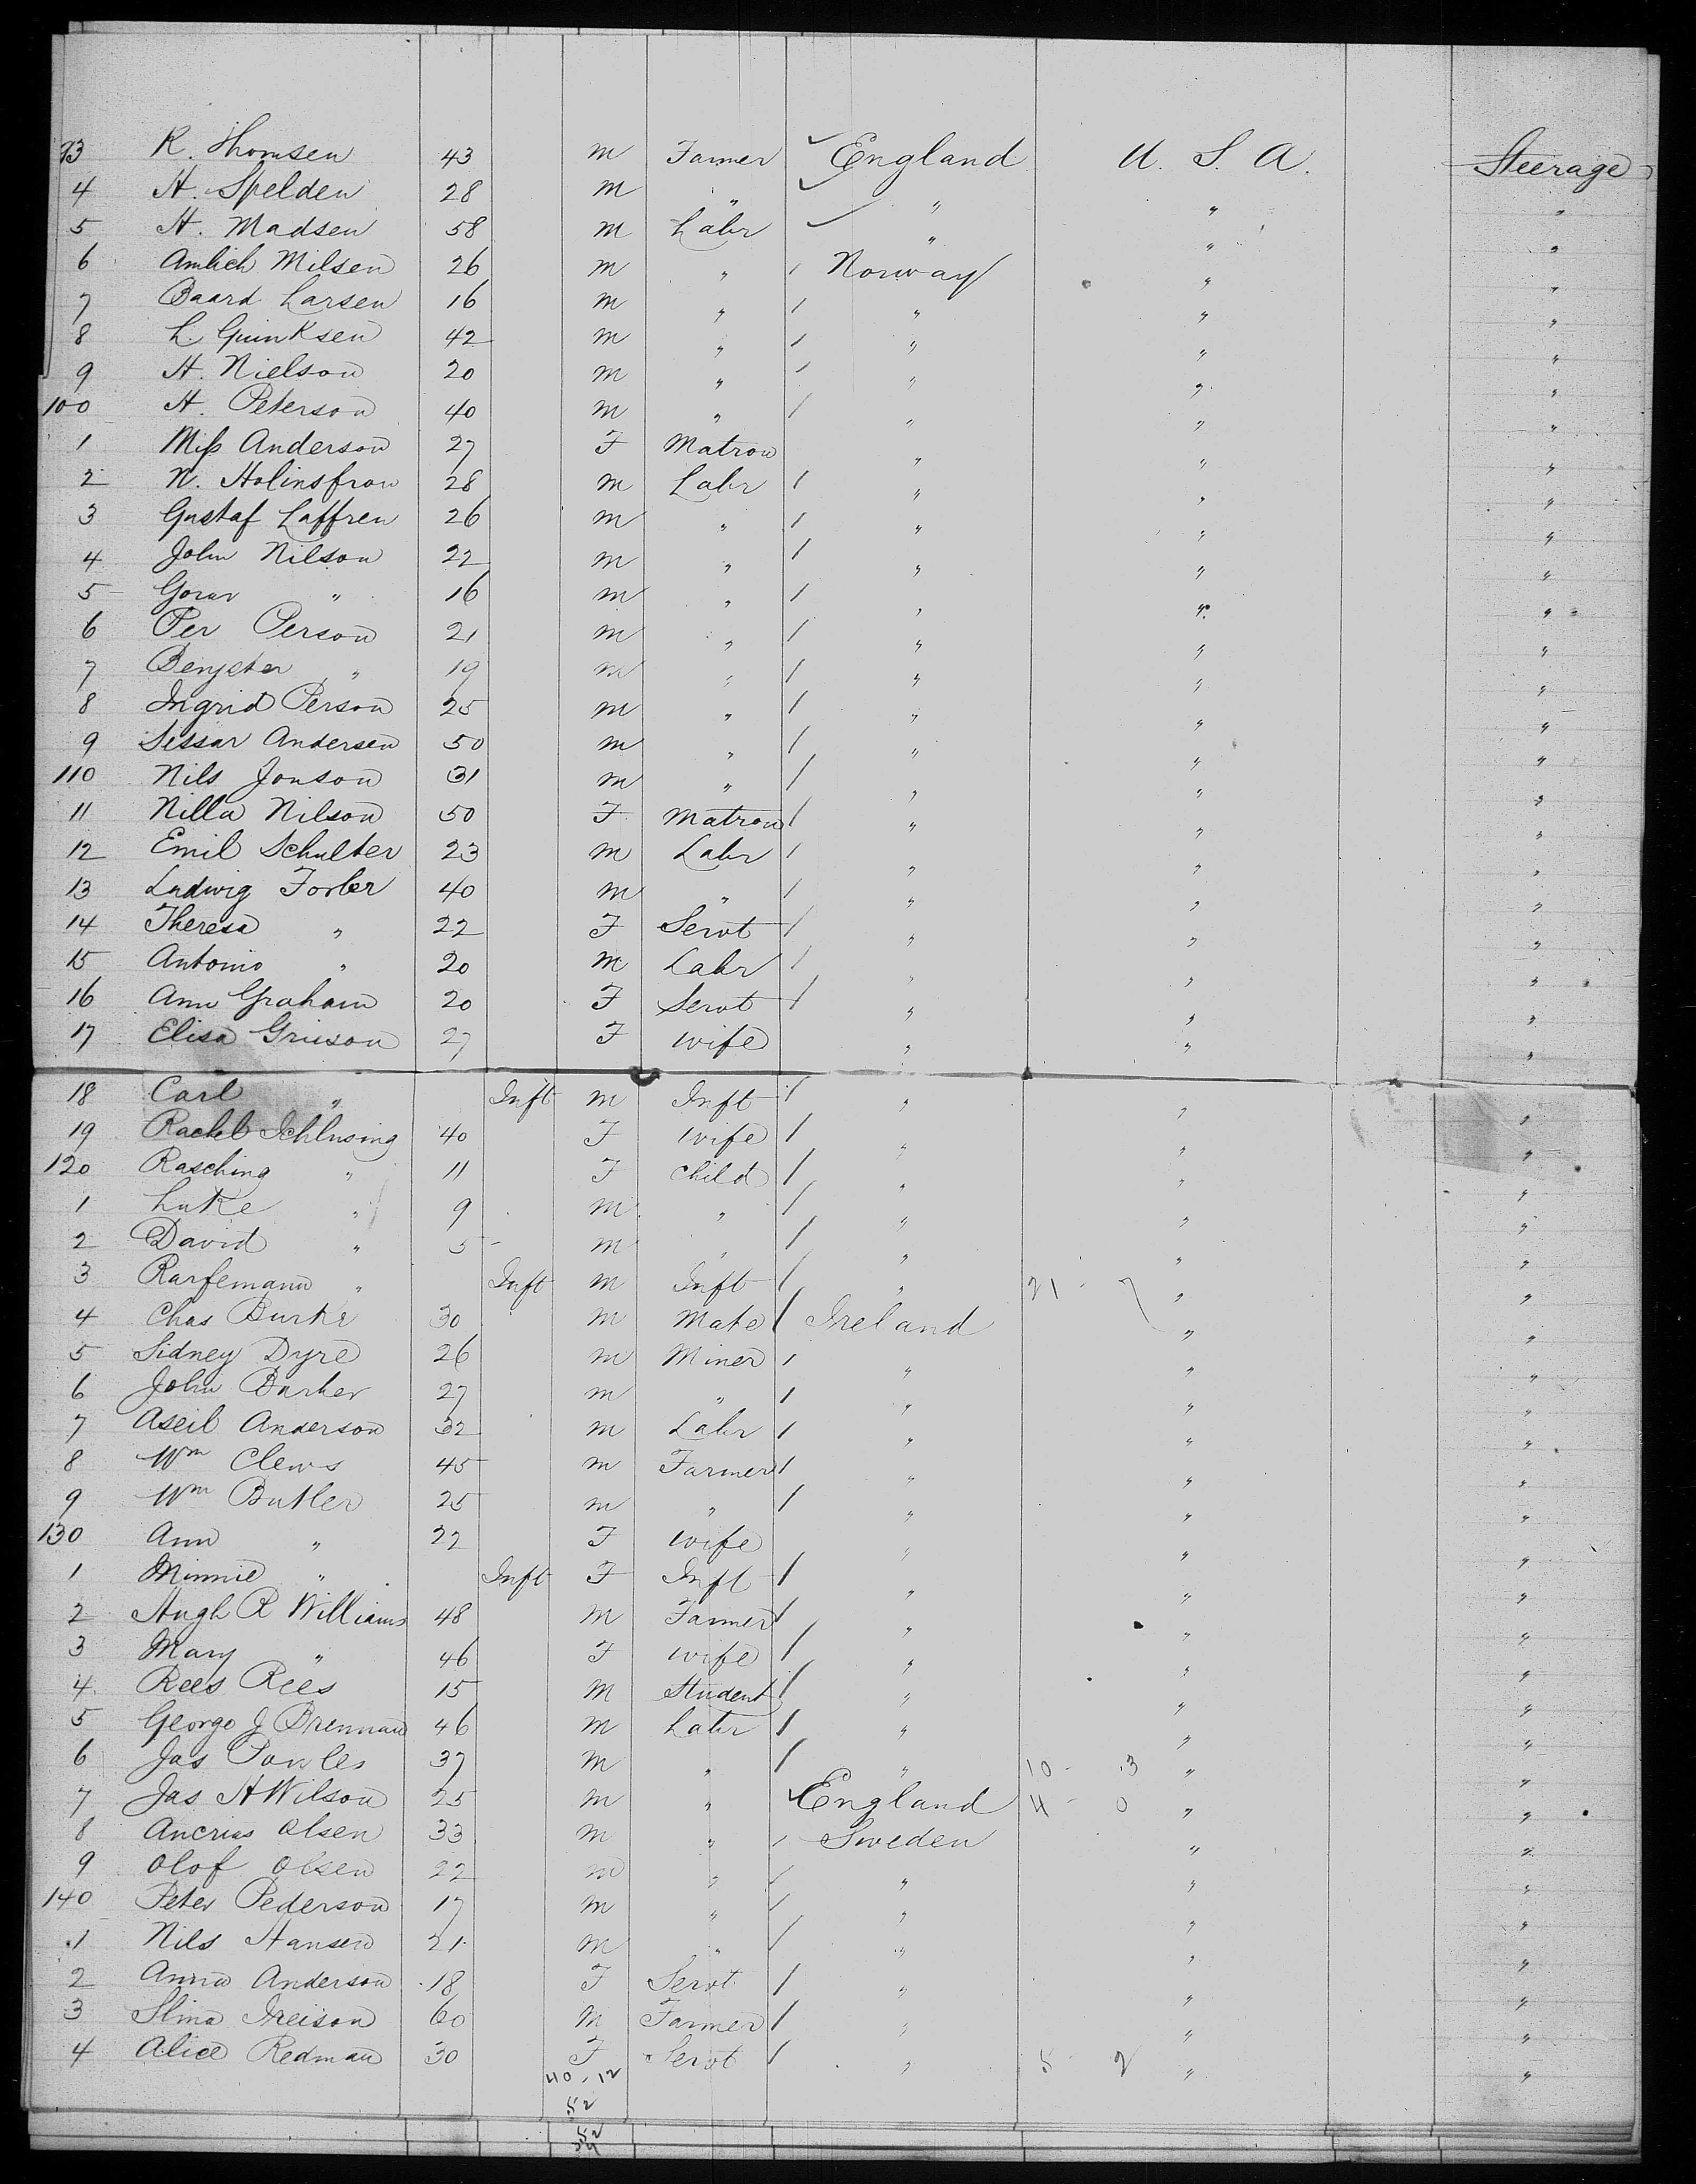 93 R. Thomsen 43 m Farmer ✓ England U. S. A. Steerage
4 H. Spelden 28 m " ✓ " " "
5 H. Madsen 58 m Labr ✓ " " "
6 Amlich Milsen 26 m " / Norway " "
7 Baard Larsen 16 m " / " " "
8 L. GuinKsen 42 m " / " " "
9 H. Nielson 20 m " / " " "
100 H. Peterson 40 m " / " " "
1 Miss Anderson 27 F Matron " " "
2 N. Holinsfron 28 m Labr / " " "
3 Gustaf Laffren 26 m " / " " "
4 John Nilson 22 m " / " " "
5 Gorar " 16 m " / " " "
6 Per Person 21 m " / " " "
7 Bengster " 19 m " / " " "
8 Ingrid Person 25 m " / " " "
9 Sissar Andersen 50 m " / " " "
110 Nils Jonson 31 m " / " " "
11 Nilla Nilson 50 F Matron / " " "
12 Emil Schulter 23 m Labr / " " "
13 Ludwig Forber 40 m " / " " "
14 Theresa " 22 F Servt / " " "
15 Antonio " 20 m Labr / " " "
16 Ann Graham 20 F Servt / " " "
17 Elisa Griuson 27 F wife " " "
18 Carl " Inft m Inft / " " "
19 Rachel Schlusing 40 F wife / " " "
120 Rasching " 11 F child / " " "
1 Luke " 9 m " / " " "
2 David " 5 m " / " " "
3 Rarfemann " Inft m Inft / " 21 - 7 " "
4 Chas Burke 30 m Mate / Ireland " "
5 Sidney Dyre 26 m Miner / " " "
6 John Barker 27 m " / " " "
7 Aseil Anderson 32 m Labr / " " "
8 Wm Clews 45 m Farmer / " " "
9 Wm Butler 25 m " / " " "
130 Ann " 22 F wife " " "
1 Minnie " Inft F Inft / " " "
2 Hugh R Williams 48 m Farmer / " " "
3 Mary " 46 F wife / " " "
4 Rees Rees 15 m Student / " " "
5 George J Brennan 46 m Labr / " " "
6 Jas Powles 37 m " / " 10 - 3 " "
7 Jas H Wilson 25 m " ✓ England 4 - 0 " "
8 Ancrias Olsen 33 m " / Sweden " "
9 Olof Olsen 22 m " / " " "
140 Peter Pederson 17 m " / " " "
1 Nils Hansen 21 m " / " " "
2 Anna Anderson 18 F Servt / " " "
3 Slina Ireison 60 m Farmer / " " "
4 Alice Redman 30 F Servt / " 5 - 2 " "
40 - 12
52